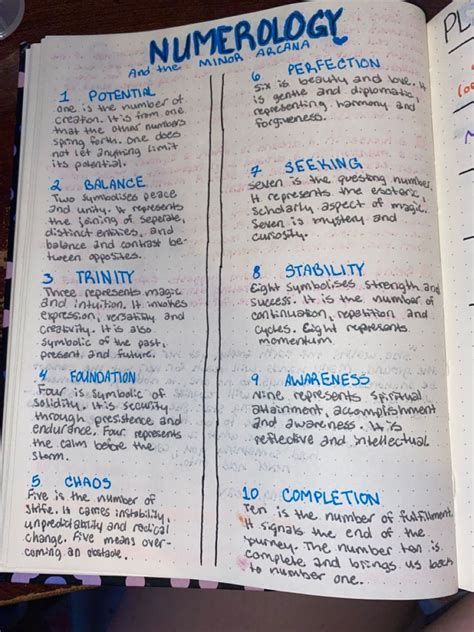 NUMEROLOGY
And the MINOR ARCANA
1 POTENTIAL
One is the number of
creation. It is from one
that the other numbers
spring forth. One does
not let anything limit
its potential.
2 BALANCE
Two symbolises peace
and unity. It represents
the joining of seperate,
distinct entities, and
balance and contrast be-
tween opposites.
3 TRINITY
Three represents magic
and intuition. It involves
expression, versatility and
creativity. It is also
symbolic of the past,
present and future.
4 FOUNDATION
Four is symbolic of
solidity. It is security
through presistence and
endurance. Four represents
the calm before the
storm.
5 CHAOS
Five is the number of
strife. It carries instability,
unpredictability and radical
change. Five means over-
coming an obstacle.
6 PERFECTION
Six is beauty and love. It
is gentle and diplomatic,
representing harmony and
forgiveness.
7 SEEKING
Seven is the questing number.
It represents the esoteric,
scholarly aspect of magic.
Seven is mystery and
curiosity.
8 STABILITY
Eight symbolises strength and
success. It is the number of
continuation, repetition and
cycles. Eight represents
momentum.
9 AWARENESS
Nine represents spiritual
attainment, accomplishment
and awareness. It is
reflective and intellectual.
10 COMPLETION
Ten is the number of fulfillment.
It signals the end of the
journey. The number ten is
complete and brings us back
to number one.
PL